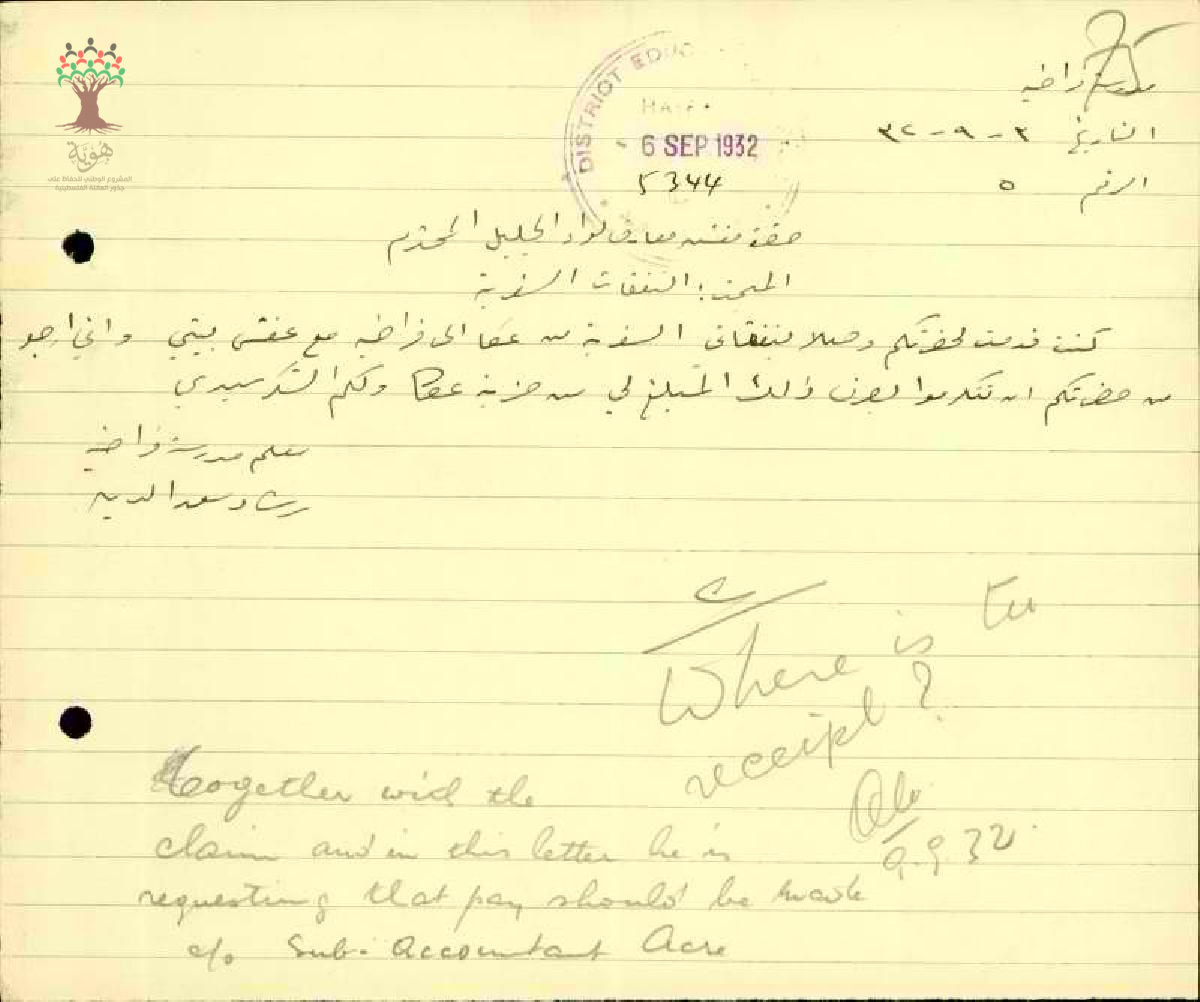 مدرسة فراضيه
التاريخ ٣ - ٩ - ٣٢
الرقم ٥
DISTRICT EDUC
HAIF
6 SEP 1932
5344
حضرة مفتش معارف لواء الجليل المحترم
المبحث : النفقات السفرية
كنت قدمت لحضرتكم وصلا بنفقاتي السفرية من عكا الى فراضيه مع عفش بيتي وإني ارجو
من حضرتكم ان تتكرموا بصرف ذلك المبلغ لي من خزينة عكا ولكم الشكر سيدي
معلم مدرسة فراضيه
رشاد سعد الدين
Where is the
receipt?
9.9.32
together with the
claim and in this letter he is
requesting that pay should be made
c/o Sub. Accountant Acre
هوية
المشروع الوطني للحفاظ على
جذور العائلة الفلسطينية